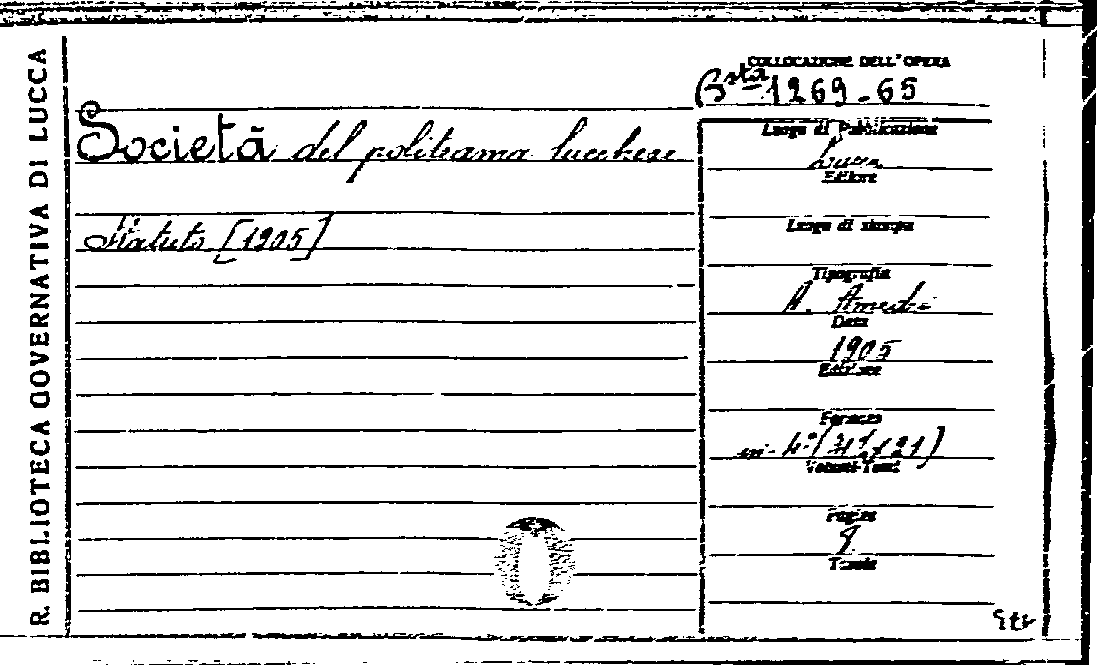 R. BIBLIOTECA GOVERNATIVA DI LUCCA
COLLOCAZIONE DELL'OPERA
Bsta 1269-65
Società del politeama lucchese
Statuto [1905]
Luogo di Pubblicazione
Lucca
Editore
Luogo di stampa
Tipografia
A. Amedei
Data
1905
Edizione
Formato
in-4º
Volumi-Tomi
Pagine
Tavole